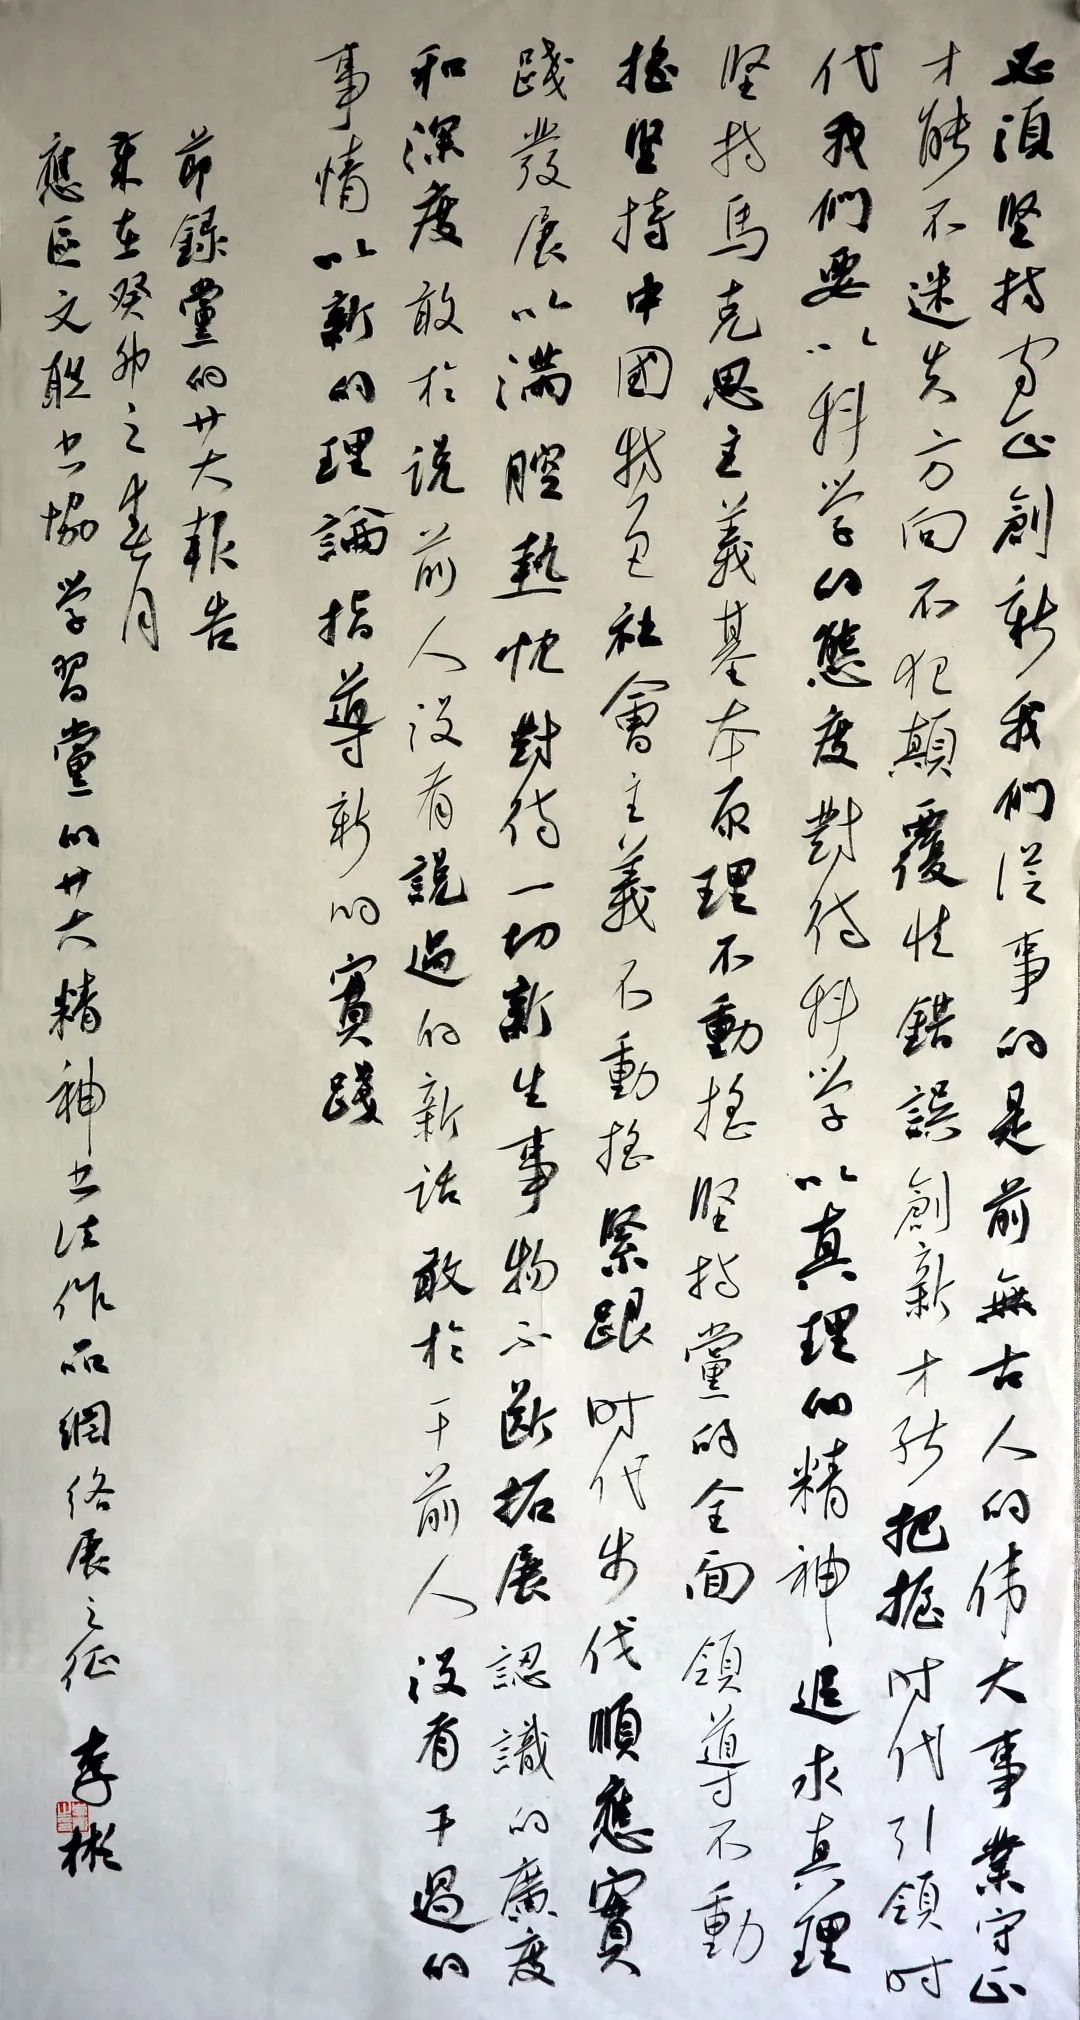 必須堅持守正創新我們從事的是前無古人的伟大事業守正
才能不迷失方向不犯顛覆性錯誤創新才能把握时代引領时
代我們要以科学的態度對待科学以真理的精神追求真理
坚持馬克思主義基本原理不動搖坚持黨的全面領導不動
搖坚持中國特色社會主義不動搖緊跟时代步伐順應實
踐發展以満腔熱忱對待一切新生事物不断拓展認識的廣度
和深度敢於説前人没有說過的新話敢於干前人没有干過的
事情以新的理論指導新的實踐
節録黨的廿大報告
來在癸卯之春月
應区文联书協学習黨的廿大精神书法作品網络展之征 李彬